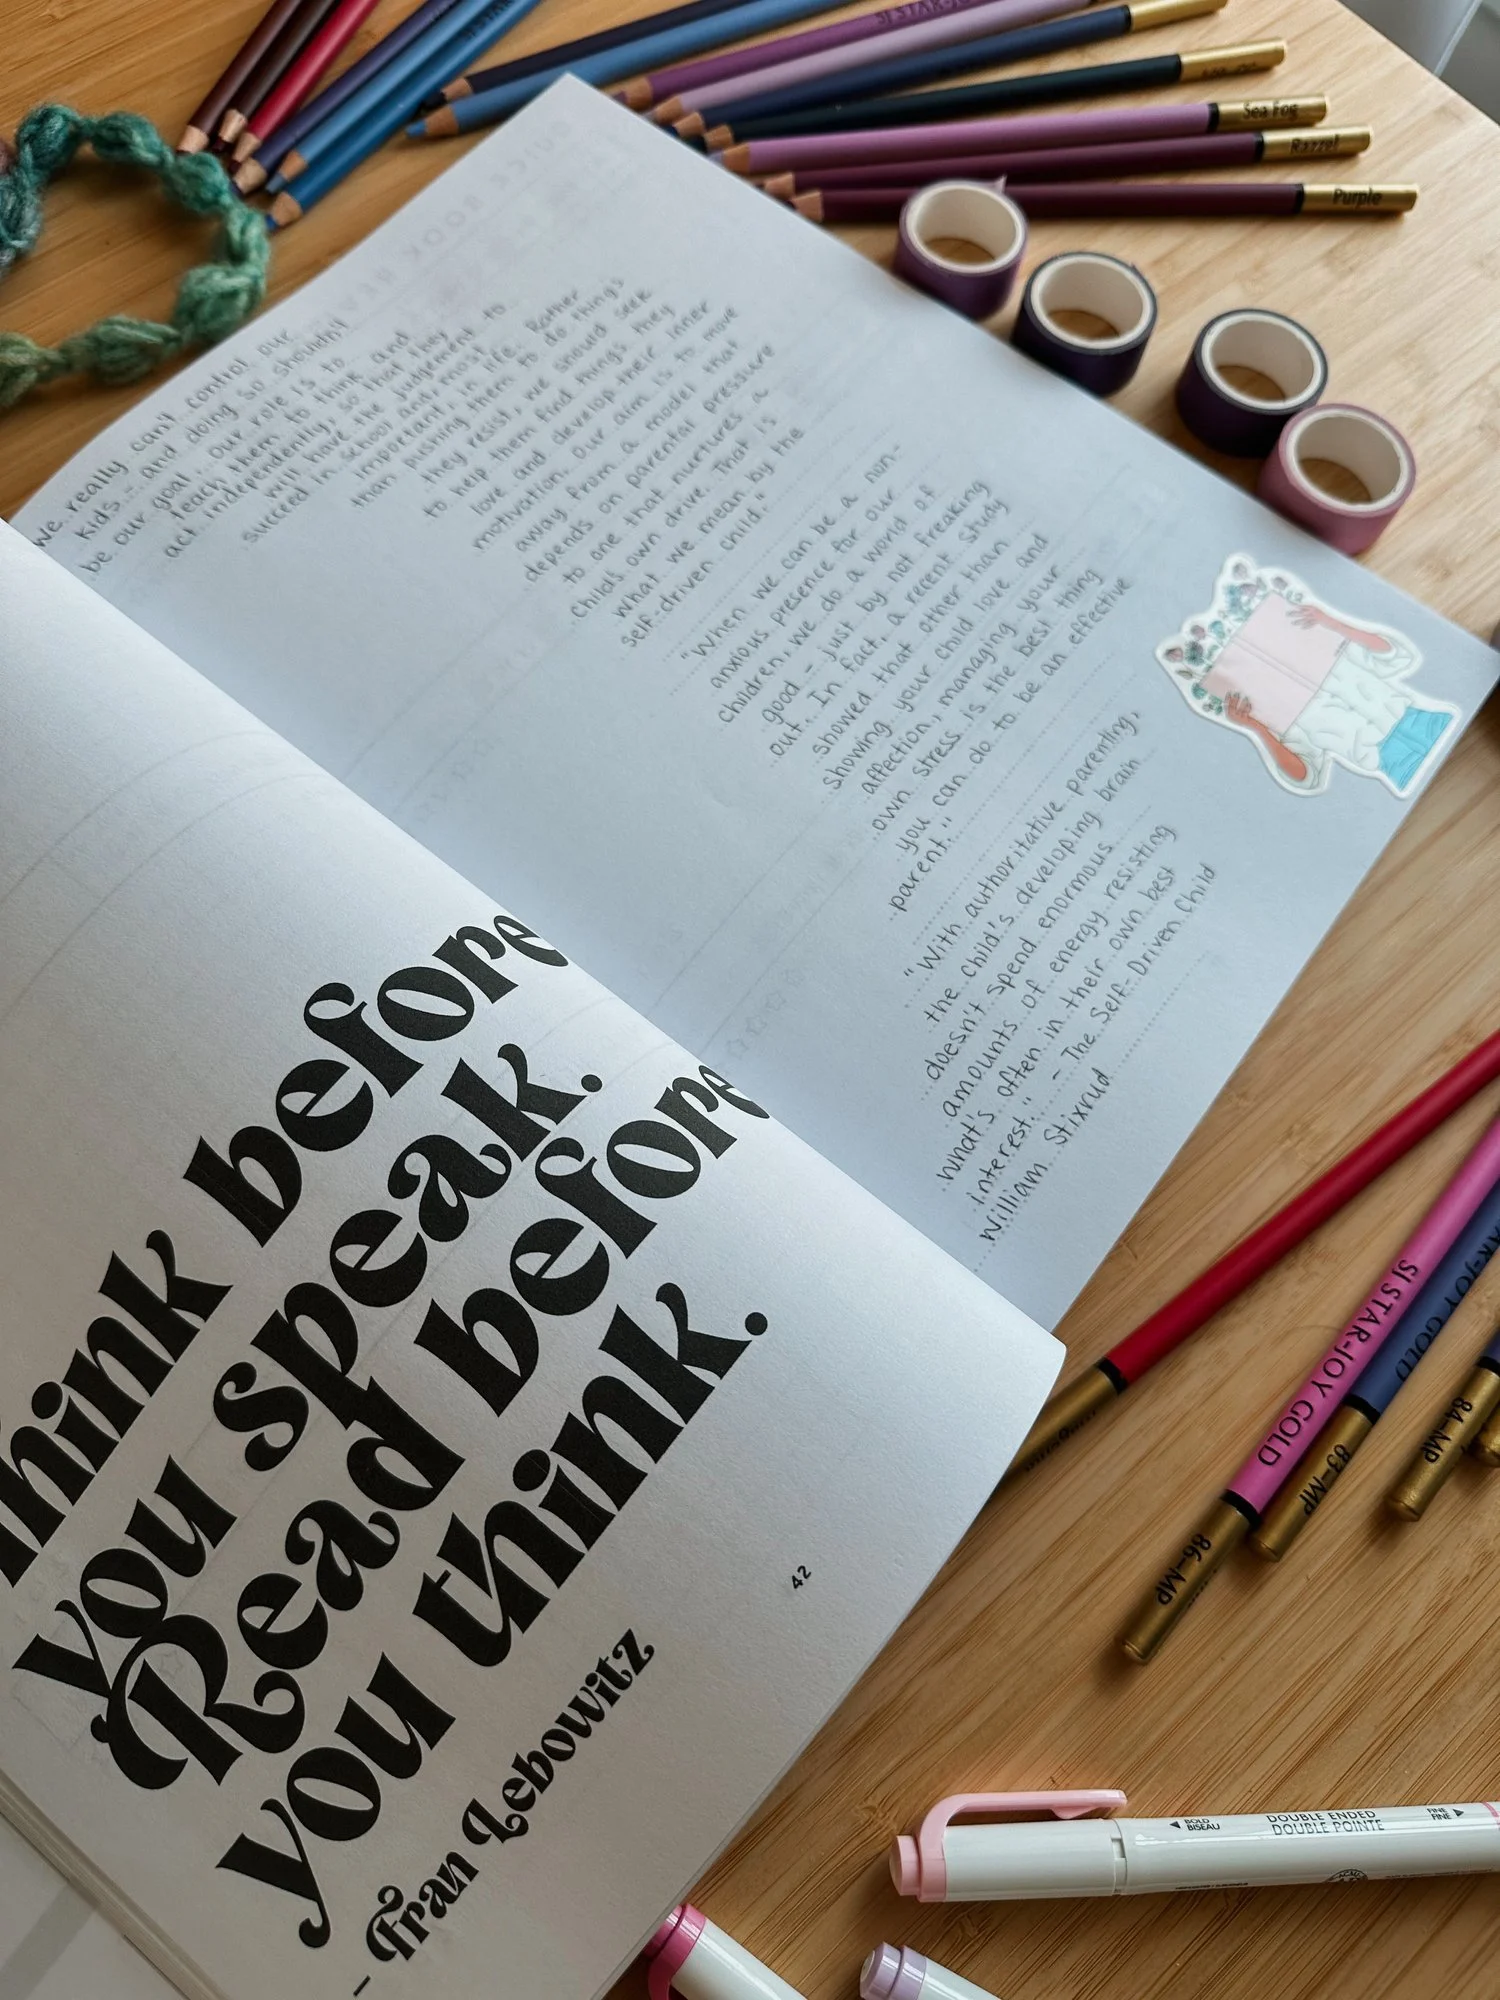 we really can't control our
kids - and doing so shouldn't
be our goal. Our role is to
teach them to think and
act independently, so that they
will have the judgement to
succeed in school and, most
important, in life. Rather
than pushing them to do things
they resist, we should seek
to help them find things they
love and develop their inner
motivation. Our aim is to move
away from a model that
depends on parental pressure
to one that nurtures a
child's own drive. That is
what we mean by the
self-driven child."
"When we can be a non-
anxious presence for our
children, we do a world of
good - just by not freaking
out. In fact, a recent study
showed that other than
showing your child love and
affection, managing your
own stress is the best thing
you can do to be an effective
parent."
"With authoritative parenting,
the child's developing brain
doesn't spend enormous
amounts of energy resisting
what's often in their own best
interest." - The Self-Driven Child
William Stixrud
Think before
you speak.
Read before
you think.
- Fran Lebowitz
42
Sea Fog
Razzel
Purple
SJ STAR-JOY GOLD
86-MP
83-MP
84-MP
BOLD
BISEAU
DOUBLE ENDED
DOUBLE POINTE
FINE
FINE